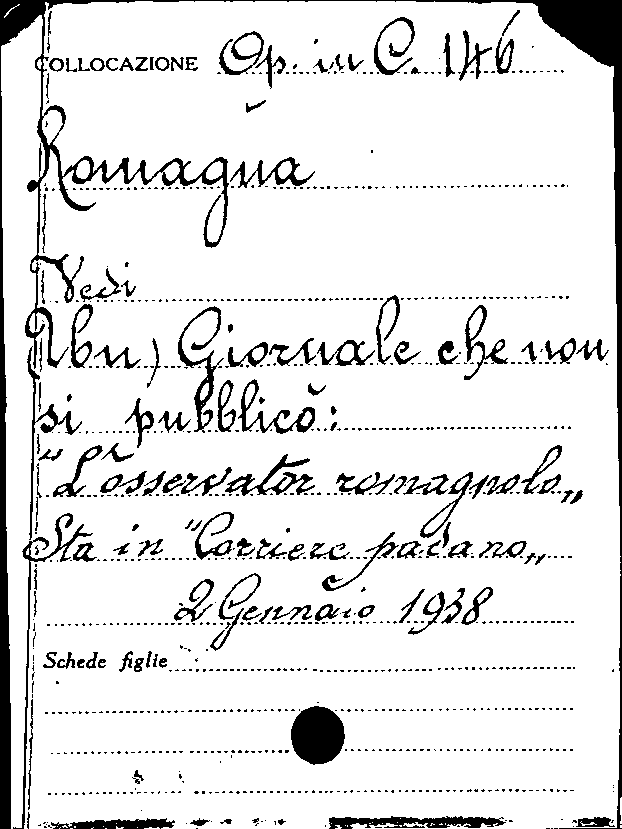 COLLOCAZIONE Op. in C. 146
Romagna
Vedi
(Ibn) Giornale che non
si pubblicò:
"L'osservator romagnolo„
Sta in "Corriere padano„
2 Gennaio 1938
Schede figlie